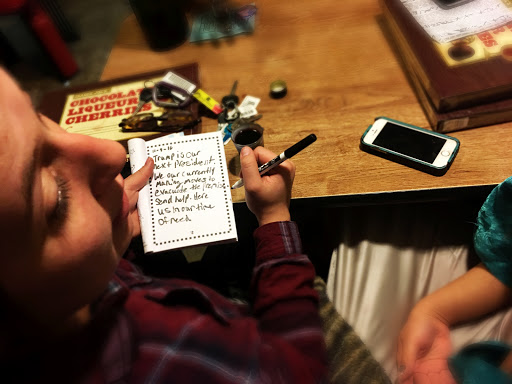 CHOCOLATE
LIQUEUR
CHERRIES
11-9-16
Trump is our
next President.
We our currently
Making moves to
evacuate the premise
Send help. Here
us in our time
of need.